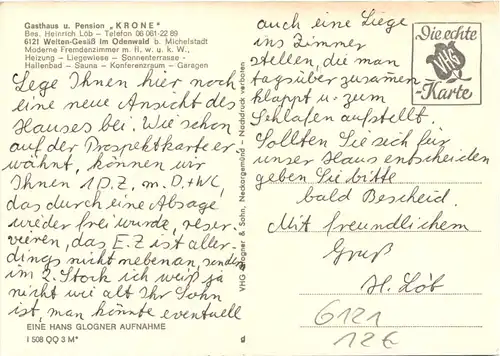 Gasthaus u. Pension „KRONE"
Bes. Heinrich Löb – Telefon 06 061-22 89
6121 Weiten-Gesäß im Odenwald b. Michelstadt
Moderne Fremdenzimmer m. fl. w. u. k. W.,
Heizung – Liegewiese – Sonnenterrasse –
Hallenbad – Sauna – Konferenzraum – Garagen
Lege Ihnen hier noch
eine neue Ansicht des
Hauses bei. Wie schon
auf der Prospektkarte er
wähnt, können wir
Ihnen 1 D.Z. m. D.+WC,
das durch eine Absage
wieder frei wurde, reser-
vieren, das E.Z ist aller-
dings nicht nebenan, sondern
im 2. Stock ich weiß ja
nicht wie alt Ihr Sohn
ist, man könnte eventuell
EINE HANS GLOGNER AUFNAHME
I 508 QQ 3 M*
VHG Glogner & Sohn, Neckargemünd – Nachdruck verboten
auch eine Liege
ins Zimmer
stellen, die man
tagsüber zusammen
klappt u. zum
Schlafen aufstellt.
Sollten Sie sich für
unser Haus entscheiden
geben Sie bitte
bald Bescheid.
Mit freundlichem
Gruß
H. Löb
Die echte
VHG
-Karte
6121
12€